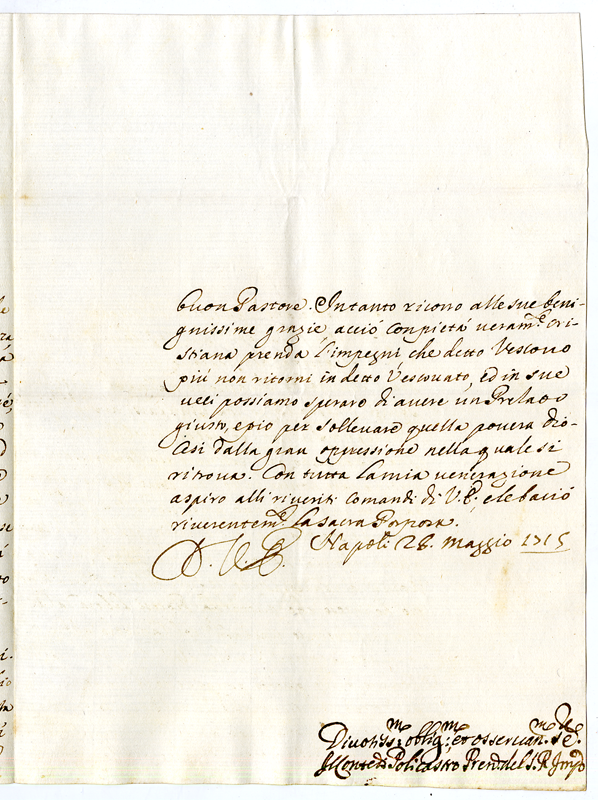 buon Pastore. Intanto ricorro alle sue beni-
gnissime grazie acciò con pietà veram.e cri-
stiana prenda l'impegni, che detto Vescovo
più non ritorni in detto Vescovato, ed in sue
veci possiamo sperare di avere un Prelato
giusto, e pio per sollevare quella povera dio-
cesi dalla grau oppressione nella quale si
ritrova. Con tutta la mia venerazione
aspiro alli riveriti comandi di V.E., e le bació
riverentem.e la sacra Porpora.
Napoli 28. Maggio 1715
D. V. E.
Divotiss.mo oblig.mo et osservan.mo
Il Conte di Policastro Pren. del S. R. Imp.o